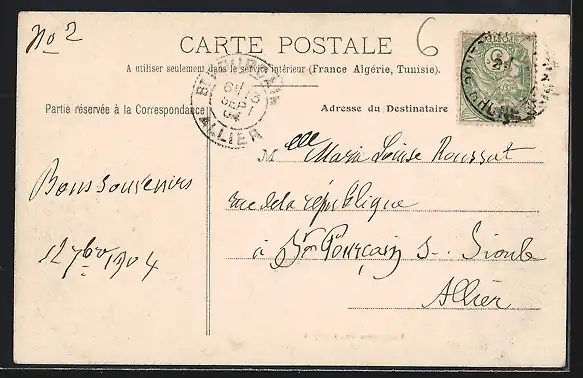 No 2
6
CARTE POSTALE
A utiliser seulement dans le service intérieur (France Algérie, Tunisie).
Partie réservée à la Correspondance
Adresse du Destinataire
ST POURÇAIN
13
SEPT
04
ALLIER
Mlle Marie Louise Roussat
Bons souvenirs
rue de la république
12 7bre 1904
à St Pourçain s. Sioule
Allier